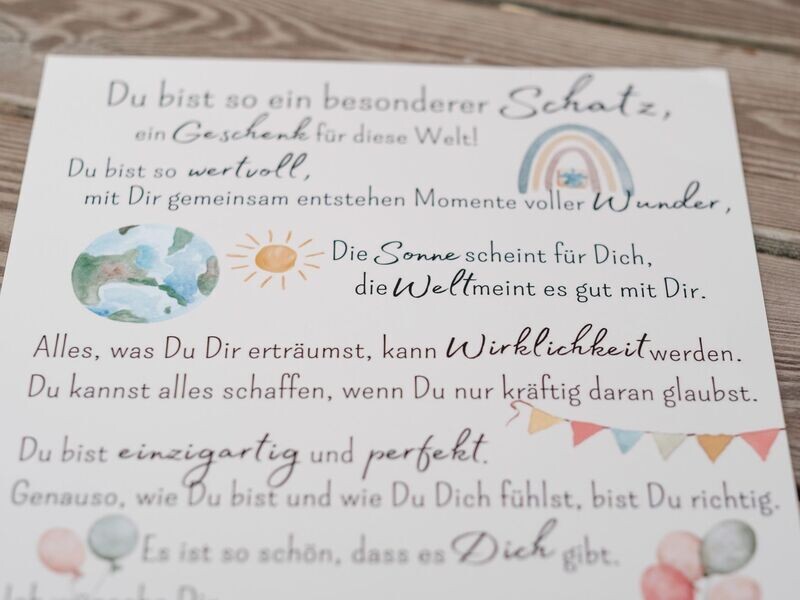 Du bist so ein besonderer Schatz,
ein Geschenk für diese Welt!
Du bist so wertvoll,
mit Dir gemeinsam entstehen Momente voller Wunder,
Die Sonne scheint für Dich,
die Welt meint es gut mit Dir.
Alles, was Du Dir erträumst, kann Wirklichkeit werden.
Du kannst alles schaffen, wenn Du nur kräftig daran glaubst.
Du bist einzigartig und perfekt.
Genauso, wie Du bist und wie Du Dich fühlst, bist Du richtig.
Es ist so schön, dass es Dich gibt.